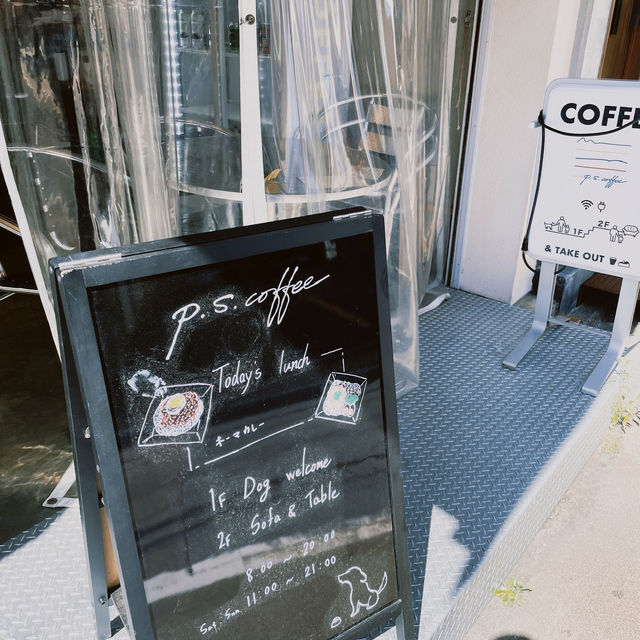 p.s.coffee
Today's lunch
キーマカレー
1F Dog welcome
2F Sofa & Table
8:00 ~ 20:00
Sat. Sun 11:00 ~ 21:00
COFFE
p.s.coffee
1F
2F
& TAKE OUT